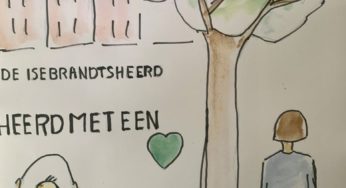 DE ISEBRANDTSHEERD
HEERD MET EEN